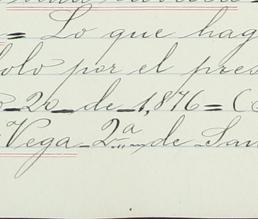 = Lo que hag
olo por el pres
20 de 1,876 = (
Vega 2ª de San